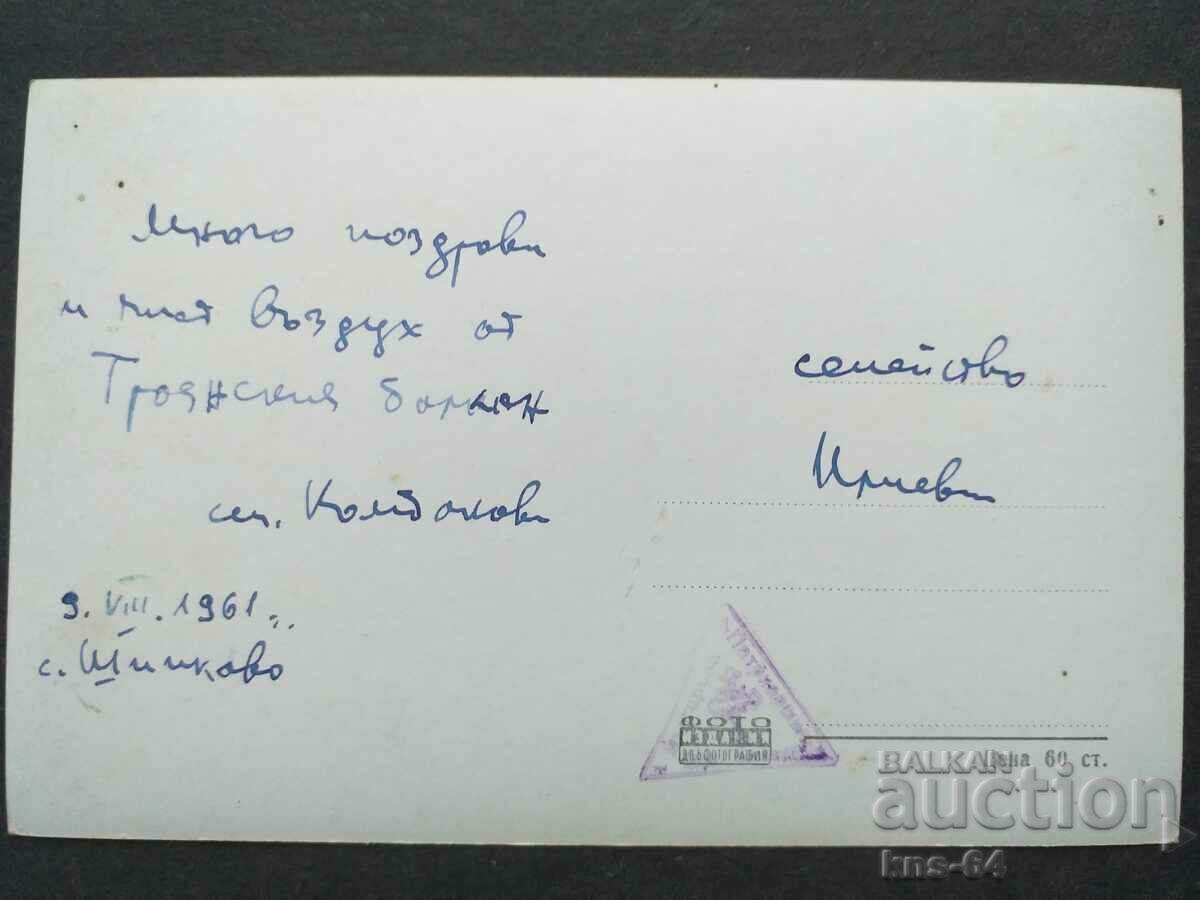 Много поздрави
и чист въздух от
Троянския балкан
9. VIII. 1961 г.
с. Шипково
семейство
ФОТО
ИЗДАНИЕ
ДП БЪЛГ. ФОТОГРАФИЯ
Цена 60 ст.
BALKAN
auction
kns-64